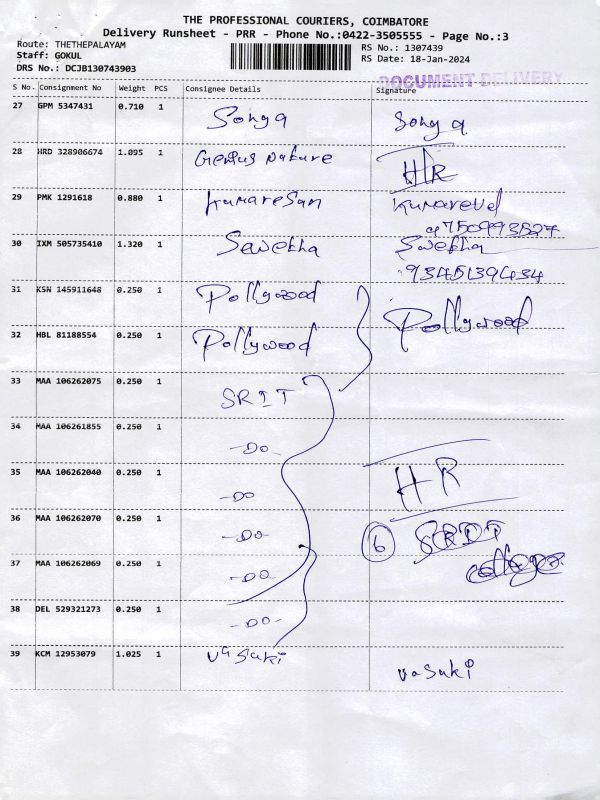 THE PROFESSIONAL COURIERS, COIMBATORE
Delivery Runsheet - PRR - Phone No.:0422-3505555 - Page No.:3
Route: THETHEPALAYAM
Staff: GOKUL
DRS No.: DCJB130743903
RS No.: 1307439
RS Date: 18-Jan-2024
DOCUMENT DELIVERY
S No. Consignment No Weight PCS Consignee Details Signature
27 GPM 5347431 0.710 1 Sonya Sonya
28 NRD 328906674 1.095 1 Genius nature HR
29 PMK 1291618 0.880 1 kumaresan
30 IXM 505735410 1.320 1 Swetha Swetha
9345139434
31 KSN 145911648 0.250 1 Pollywood
32 HBL 81188554 0.250 1 Pollywood Pollywood
33 MAA 106262075 0.250 1 SRIT
34 MAA 106261855 0.250 1 -DO-
35 MAA 106262040 0.250 1 -DO HR
36 MAA 106262070 0.250 1 -DO- 6
37 MAA 106262069 0.250 1 -DO- college
38 DEL 529321273 0.250 1 -DO-
39 KCM 12953079 1.025 1 vasuki vasuki